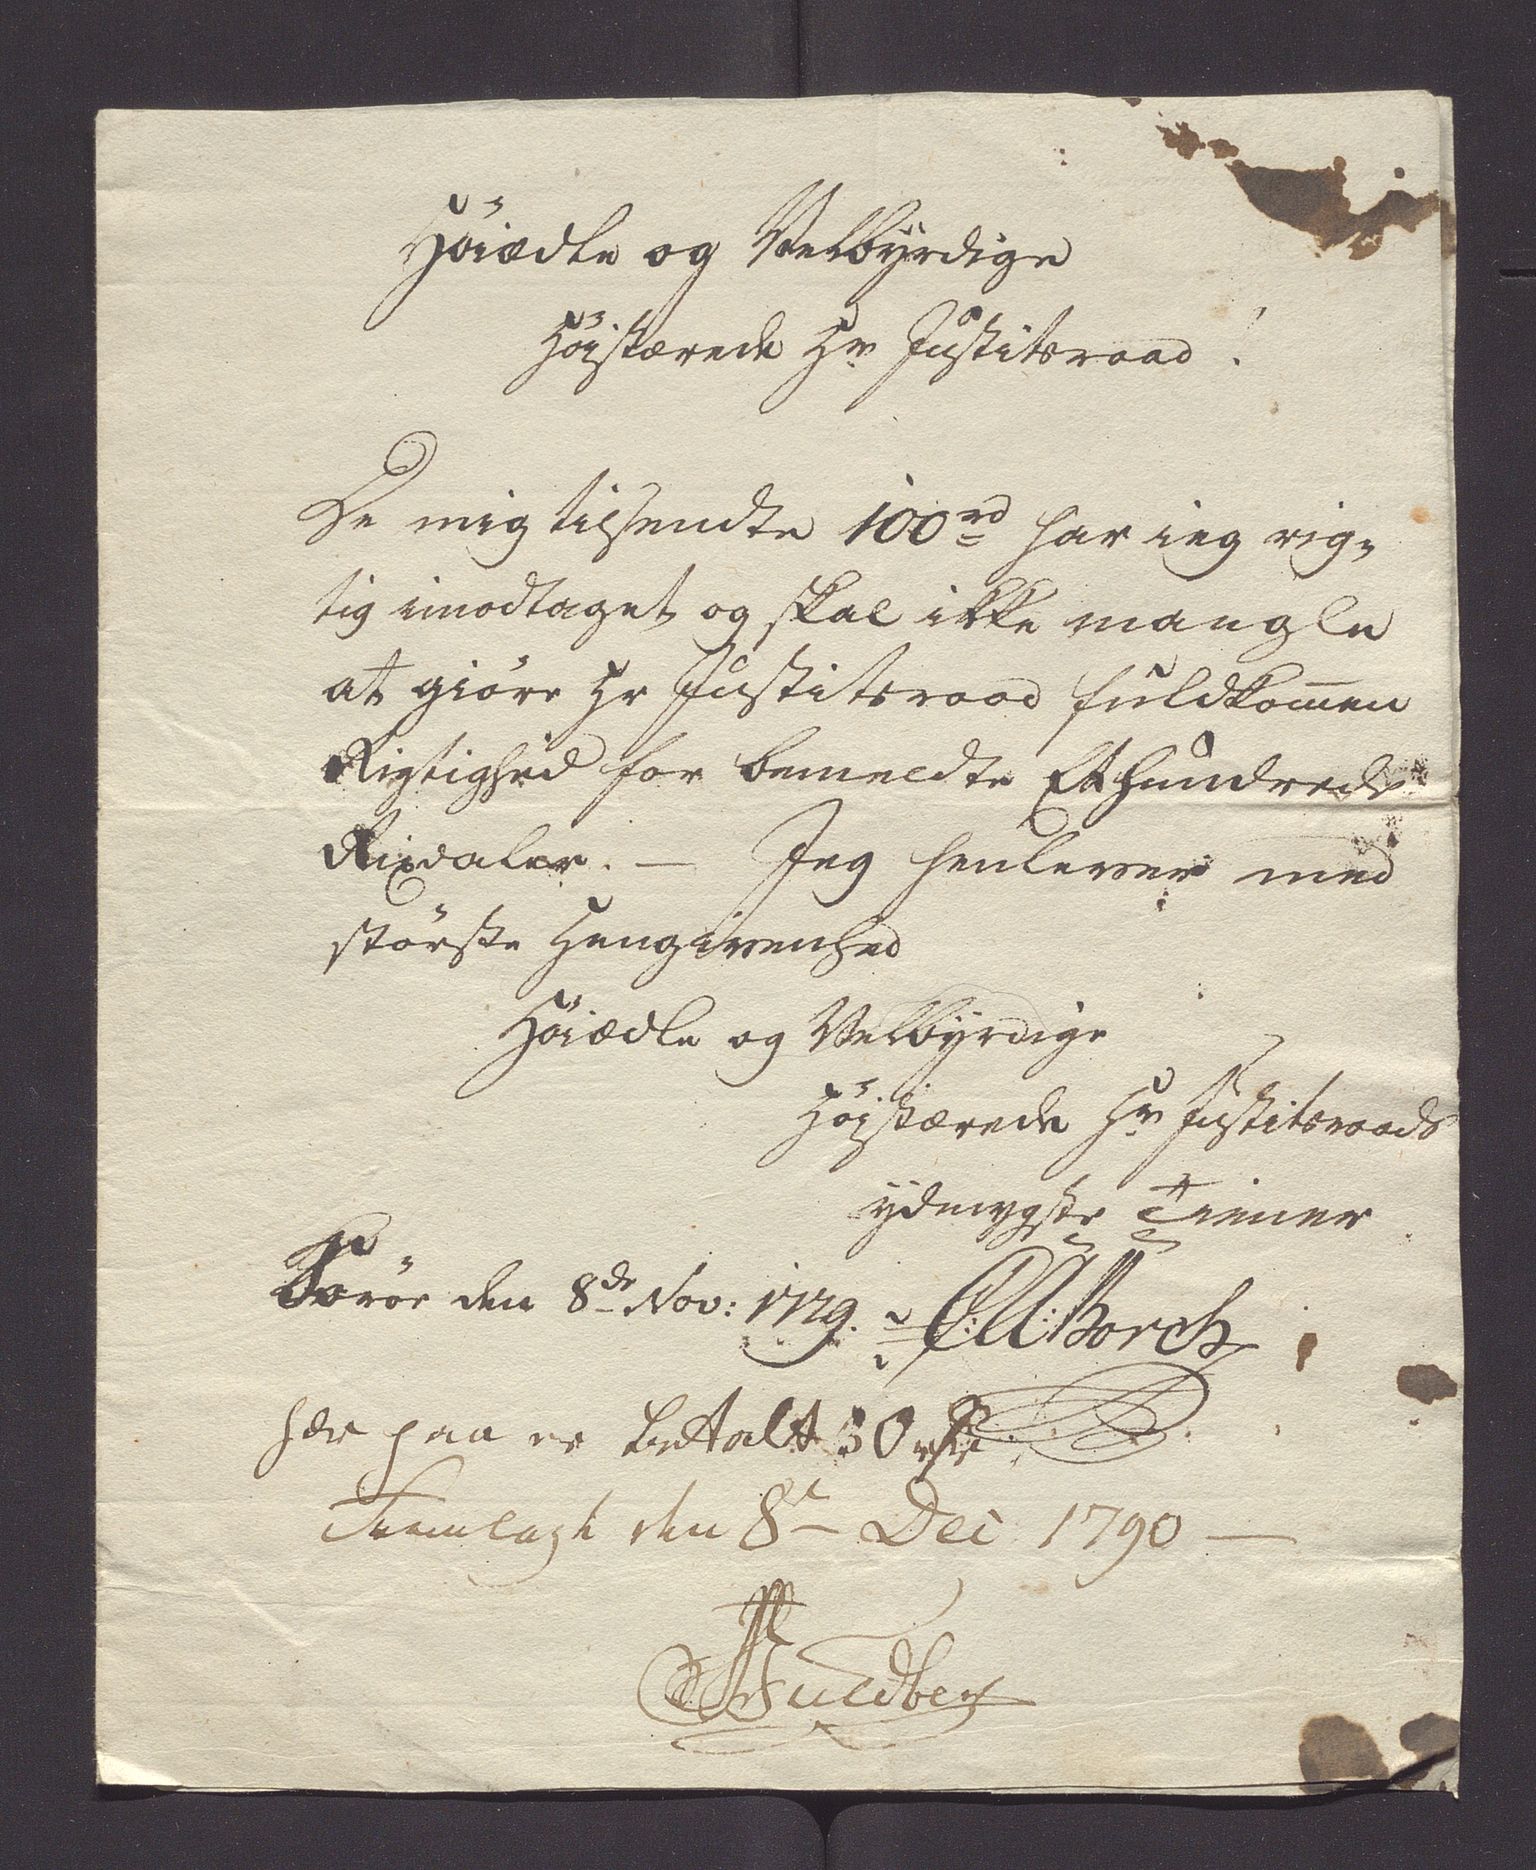 Höiædle og Velbÿrdige
Höistærede Hr Justitsraad!
De mig tilsendte 100rd har ieg rig=
tig imodtaget og skal ikke mangle
at giöre Hr Justitsraad fuldkommen
Rigtighed for bemeldte Et hundrede
Rixdaler. — Jeg henlever med
störste Hengivenhed
Höiædle og Velbÿrdige
Höistærede Hr Justitsraads
ydmygste Tiener
den 8de Nov: 1779. Borch
her paa er betalt 30
den 8t Dec 1790 —
Buldberg